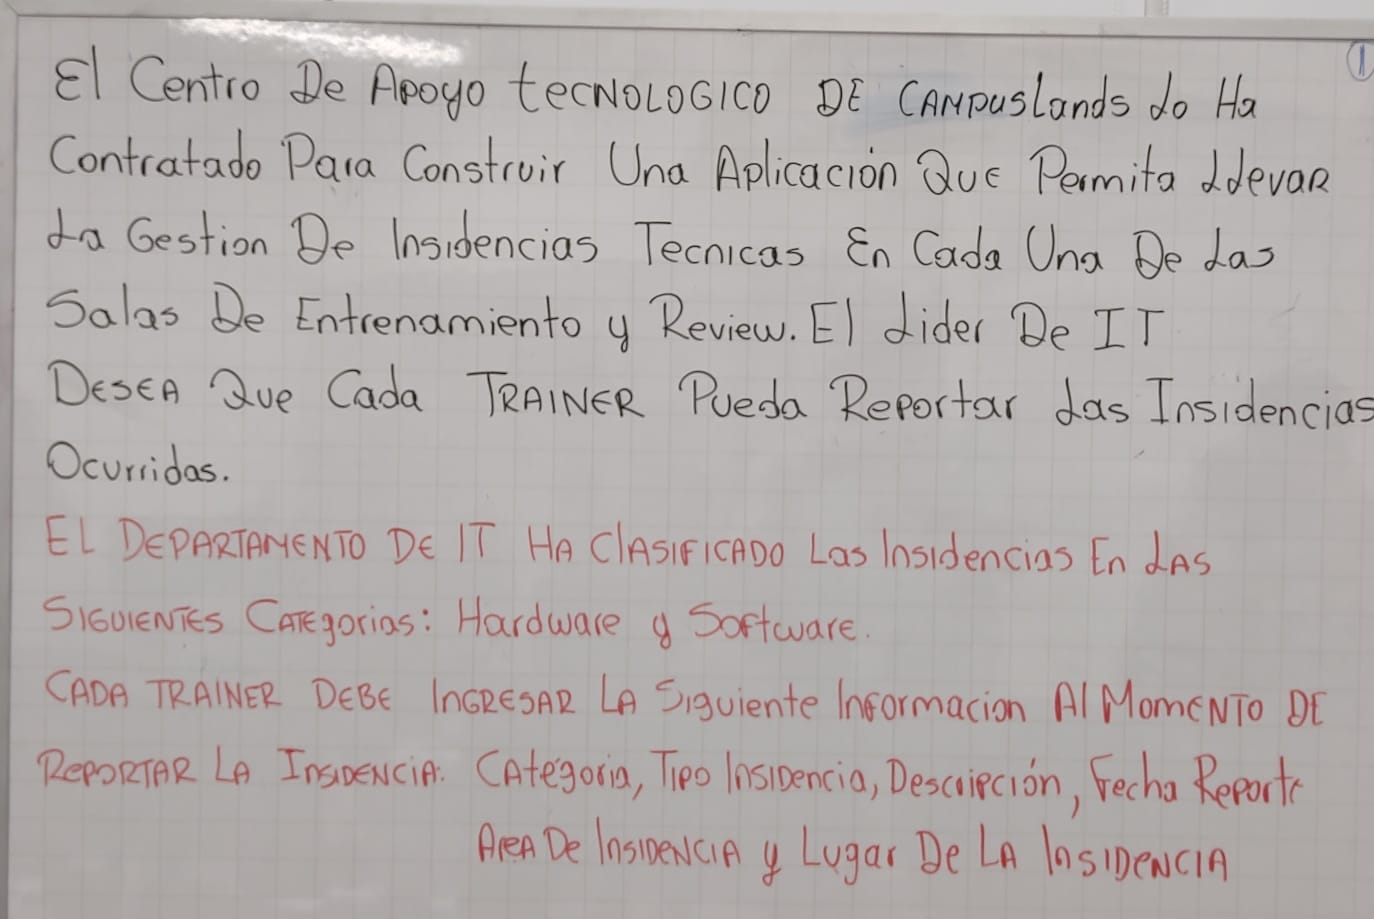 1
El Centro De Apoyo tecNOLOGICO DE CAMPUSLands Lo Ha
Contratado Para Construir Una Aplicación Que Permita LLevar
La Gestion De Insidencias Tecnicas En Cada Una De Las
Salas De Entrenamiento y Review. El Lider De IT
DESEA Que Cada TRAINER Pueda Reportar Las Insidencias
Ocurridas.
EL DEPARTAMENTO DE IT HA ClASIFICADO Las Insidencias En LAS
SIGUIENTES CATEgorias: Hardware y Software.
CADA TRAINER DEBE INGRESAR LA Siguiente Informacion Al MomENTO DE
REPORTAR LA INSIDENCIA. CAtegoria, Tipo InsiDencia, Descripción, Fecha Reporte
AreA De InsIDENCIA y Lugar De LA InSIDENCIA